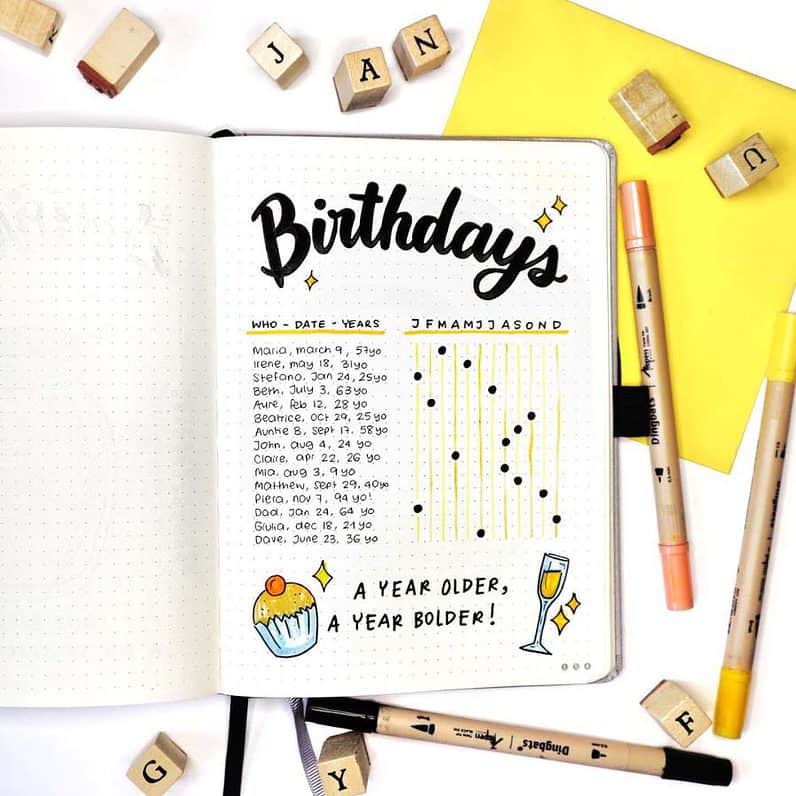 J
A
N
U
Birthdays
WHO - DATE - YEARS
J F M A M J J A S O N D
Maria, march 9, 57yo
Irene, may 18, 31yo
Stefano, Jan 24, 25yo
Beth, July 3, 63yo
Avre, feb 12, 28 yo
Beatrice, oct 29, 25yo
Auntie B, sept 17, 58yo
John, aug 4, 24 yo
Claire, apr 22, 26 yo
Mia, aug 3, 9yo
Matthew, sept 29, 40yo
Piera, nov 7, 94 yo!
Dad, Jan 24, 64 yo
Giulia, dec 18, 21yo
Dave, June 23, 36 yo
A YEAR OLDER,
A YEAR BOLDER!
Brush
Dingbats*
Dingbats*
F
G
Y